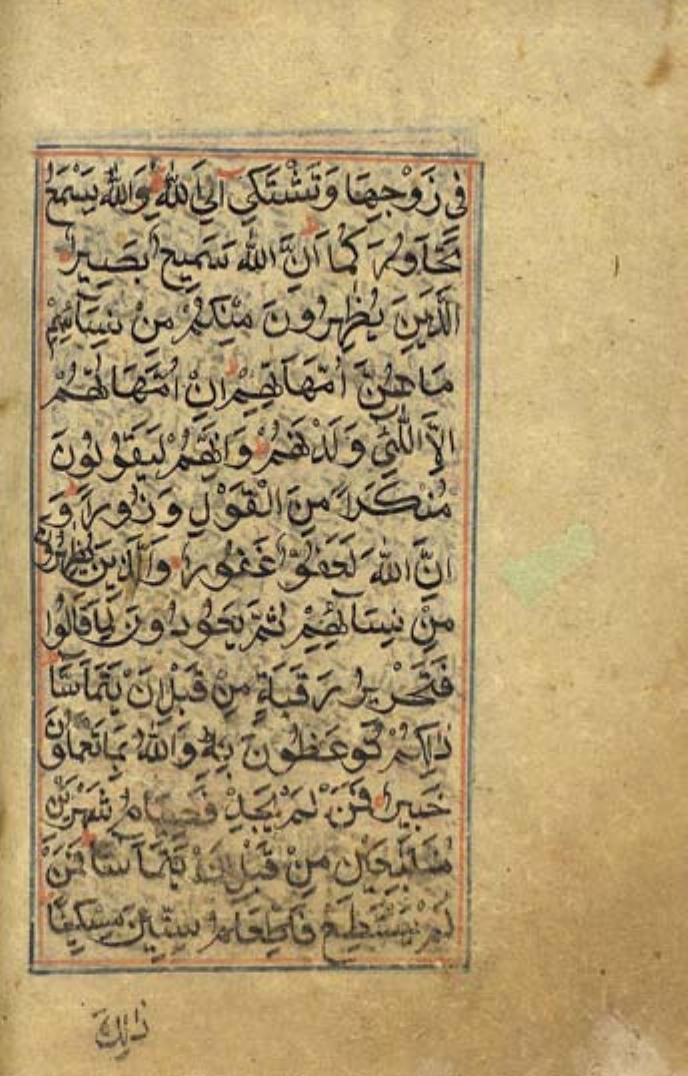 فِي زَوْجِهَا وَتَشْتَكِي آلِيَ اللّٰهِ وَاللّٰهُ يَسْمَعُ
تَحَاوُرَكُمَا اَنَّ اللّٰهَ سَمِيعٌ بَصِيرٌ
الَّذِينَ يُظٰهِرُونَ مِنْكُمْ مِنْ نِسَآئِهِمْ
مَا هُنَّ اُمَّهَاتِهِمْ اِنْ اُمَّهَاتُهُمْ
اِلَّا اللّٰئِي وَلَدْنَهُمْ وَاِنَّهُمْ لَيَقُولُونَ
مُنْكَرًا مِنَ الْقَوْلِ وَزُورًا وَ
اِنَّ اللّٰهَ لَعَفُوٌّ غَفُورٌ وَالَّذِينَ يُظٰهِرُونَ
مِنْ نِسَآئِهِمْ ثُمَّ يَعُودُونَ لِمَا قَالُوا
فَتَحْرِيرُ رَقَبَةٍ مِنْ قَبْلِ اَنْ يَتَمَآسَّا
ذٰلِكُمْ تُوعَظُونَ بِهٖ وَاللّٰهُ بِمَا تَعْمَلُونَ
خَبِيرٌ فَمَنْ لَمْ يَجِدْ فَصِيَامُ شَهْرَيْنِ
مُتَتَابِعَيْنِ مِنْ قَبْلِ اَنْ يَتَمَآسَّا فَمَنْ
لَمْ يَسْتَطِعْ فَاِطْعَامُ سِتِّينَ مِسْكِينًا
ذٰلِكَ